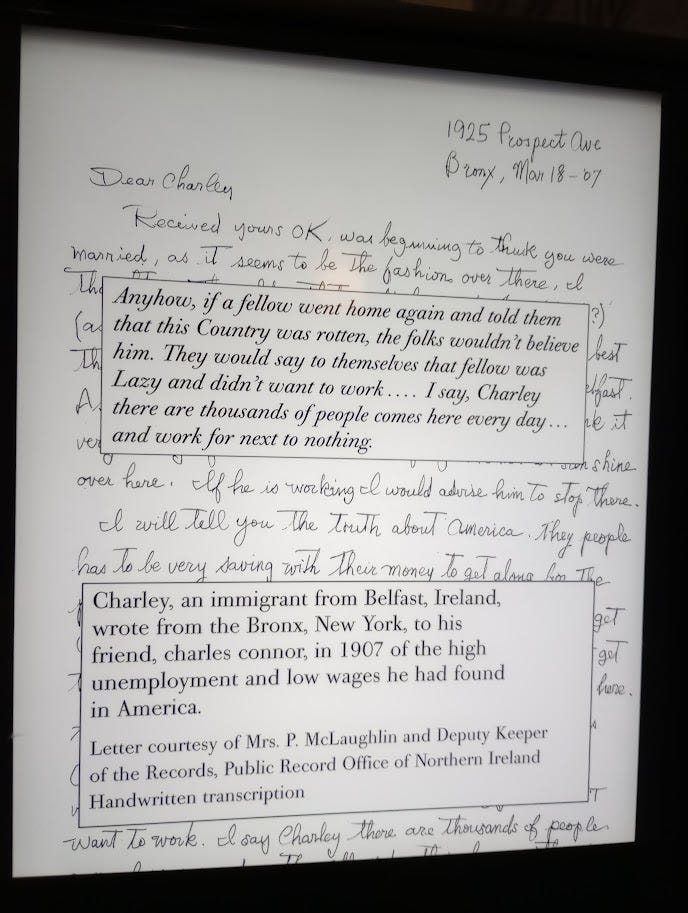 1925 Prospect Ave
Bronx, Mar 18-'07
Dear Charley
Received yours OK. was beginning to think you were
married, as it seems to be the fashion over there, I
Tho ?)
Anyhow, if a fellow went home again and told them
that this Country was rotten, the folks wouldn't believe
him. They would say to themselves that fellow was
Lazy and didn't want to work.... I say, Charley
there are thousands of people comes here every day...
and work for next to nothing.
(as
best
Th
A
it
ver sunshine
over here. If he is working I would advise him to stop there.
I will tell you the truth about America. They people
has to be very saving with their money to get along for the
Charley, an immigrant from Belfast, Ireland,
wrote from the Bronx, New York, to his
friend, charles connor, in 1907 of the high
unemployment and low wages he had found
in America.
Letter courtesy of Mrs. P. McLaughlin and Deputy Keeper
of the Records, Public Record Office of Northern Ireland
Handwritten transcription
get
get
here.
want to work. I say Charley there are thousands of people